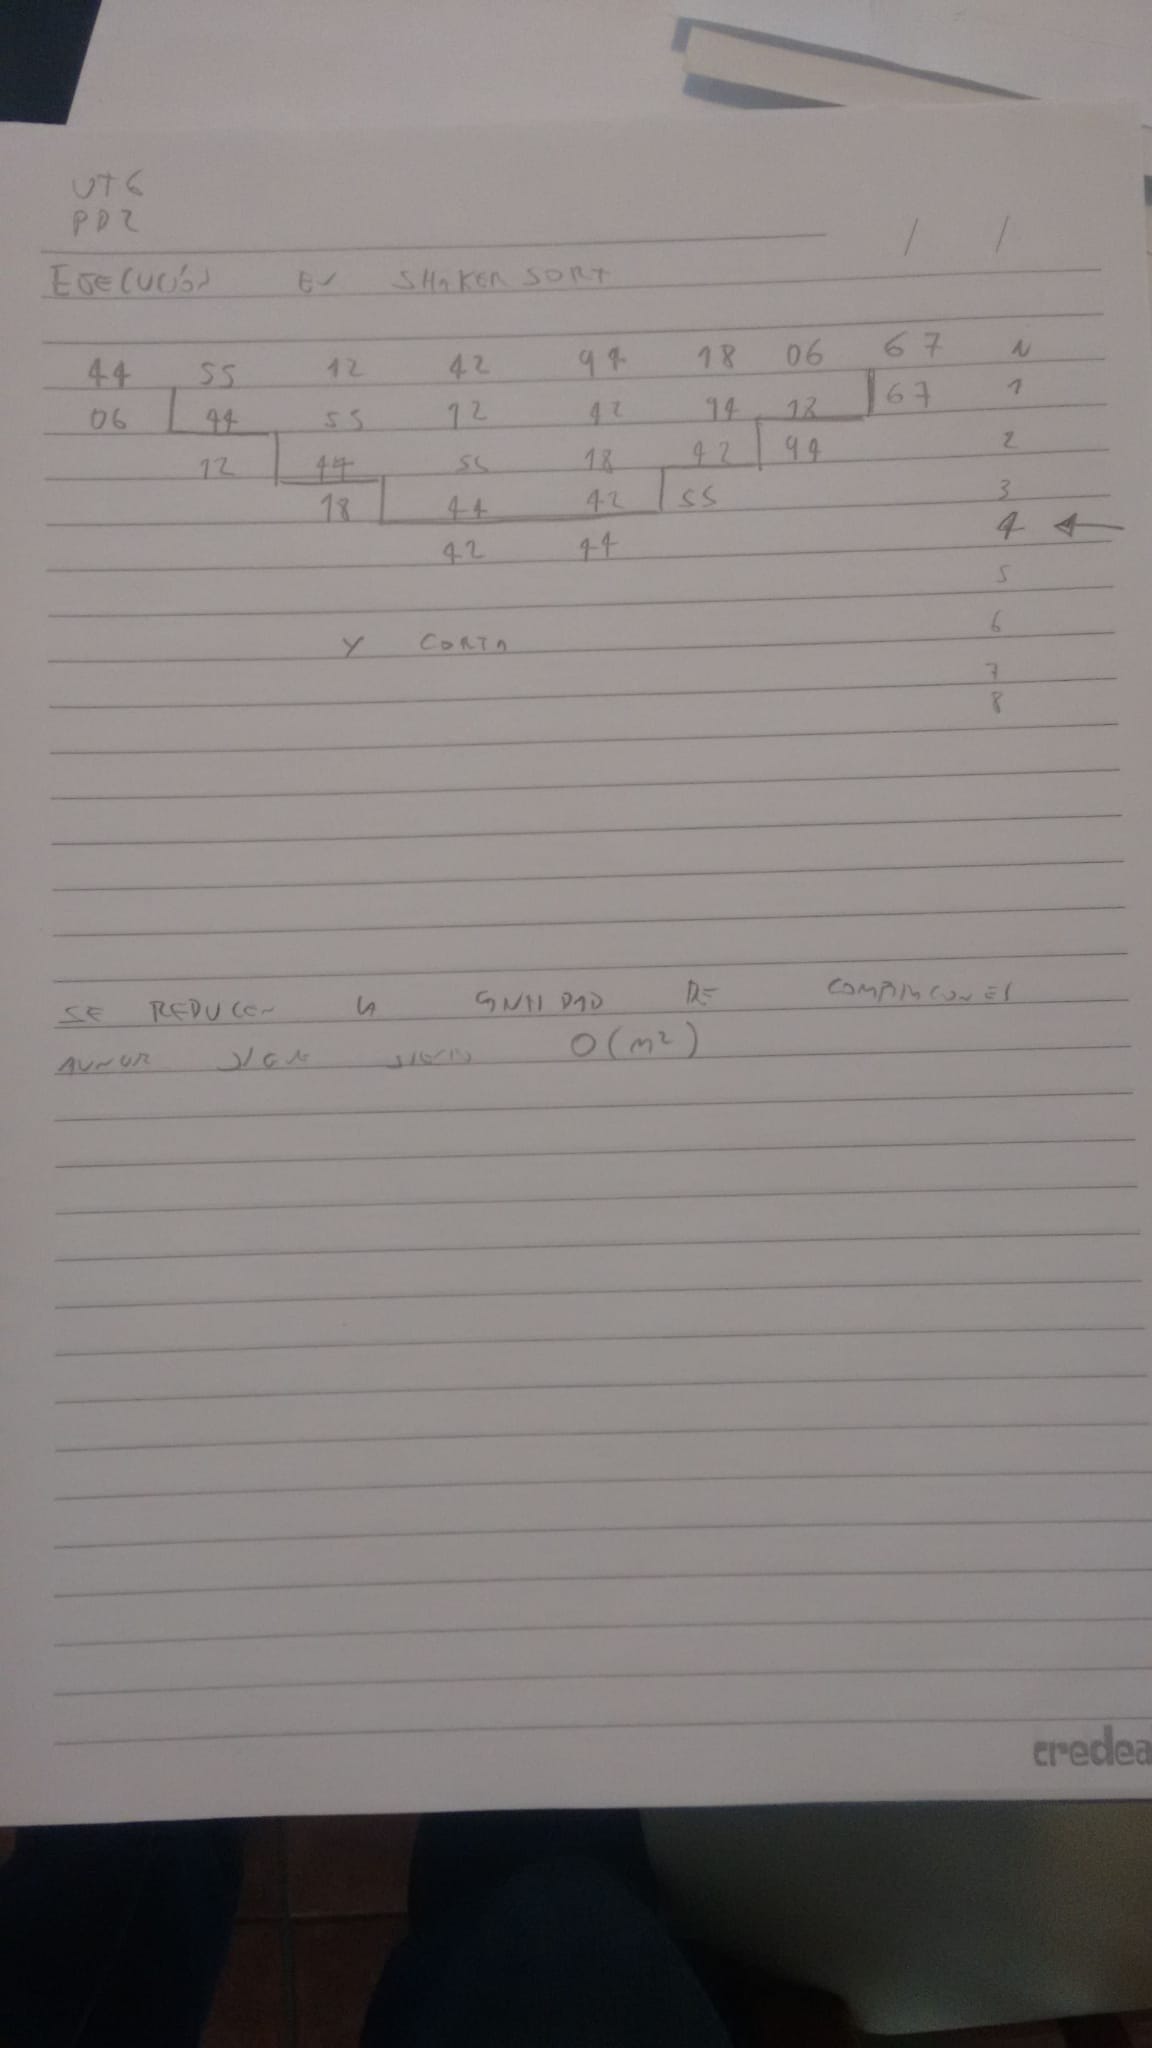 UT6
PD2
/ /
EJECUCIÓN EN SHAKER SORT
44 55 12 42 94 18 06 67 N
06 44 55 12 42 94 18 67 1
12 44 55 18 42 94 2
18 44 42 55 3
42 44 4
5
Y CORTA 6
7
8
SE REDUCEN LA CANTIDAD DE COMPARACIONES
AUNQUE SIGUE SIENDO O(n²)
credea